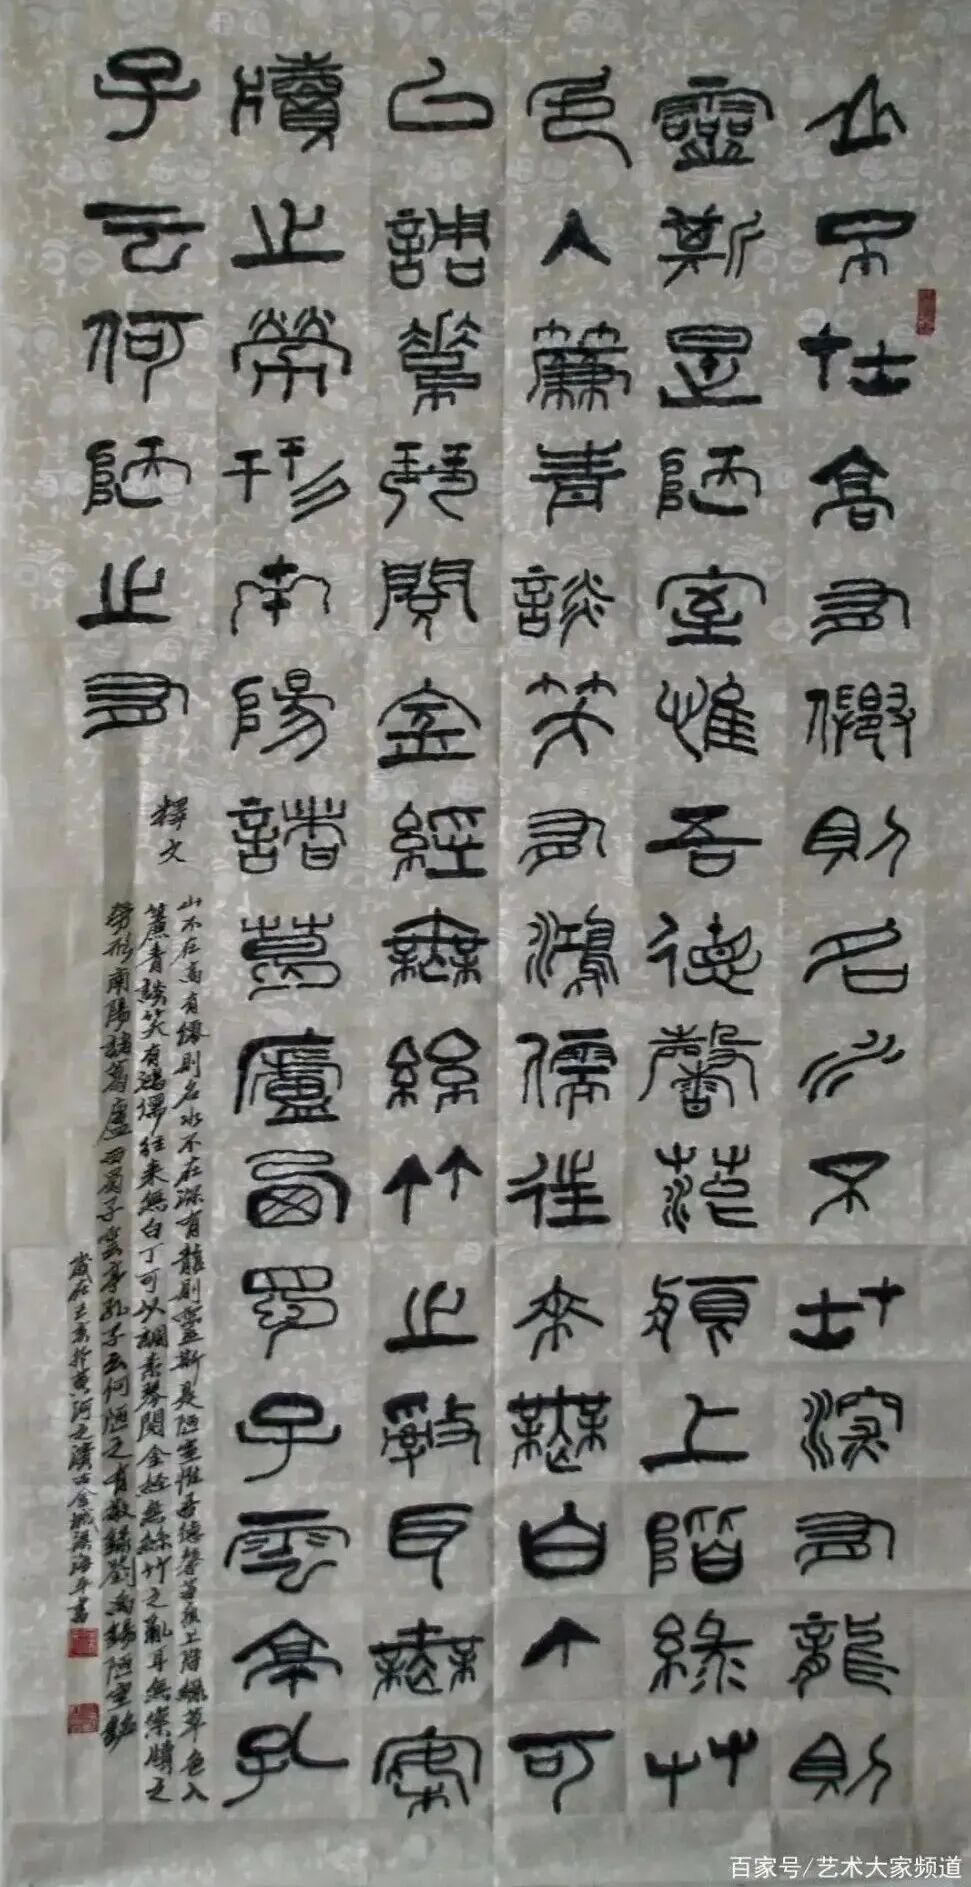 山不在高有僊則名水不在深有龍則
靈斯是陋室惟吾德馨苔痕上階綠艸
色入簾青談笑有鴻儒往來無白丁可
以調素琴閱金經無絲竹之亂耳無案
牘之勞形南陽諸葛廬西蜀子雲亭孔
子云何陋之有
釋文
山不在高有僊則名水不在深有龍則靈斯是陋室惟吾德馨苔痕上階綠草色入
簾青談笑有鴻儒往来無白丁可以調素琴閱金經無絲竹之亂耳無案牘之
勞形南陽諸葛廬西蜀子雲亭孔子云何陋之有敬錄劉禹錫陋室銘
歲在己亥於黃河之濱古金城梁海平書
百家号/艺术大家频道